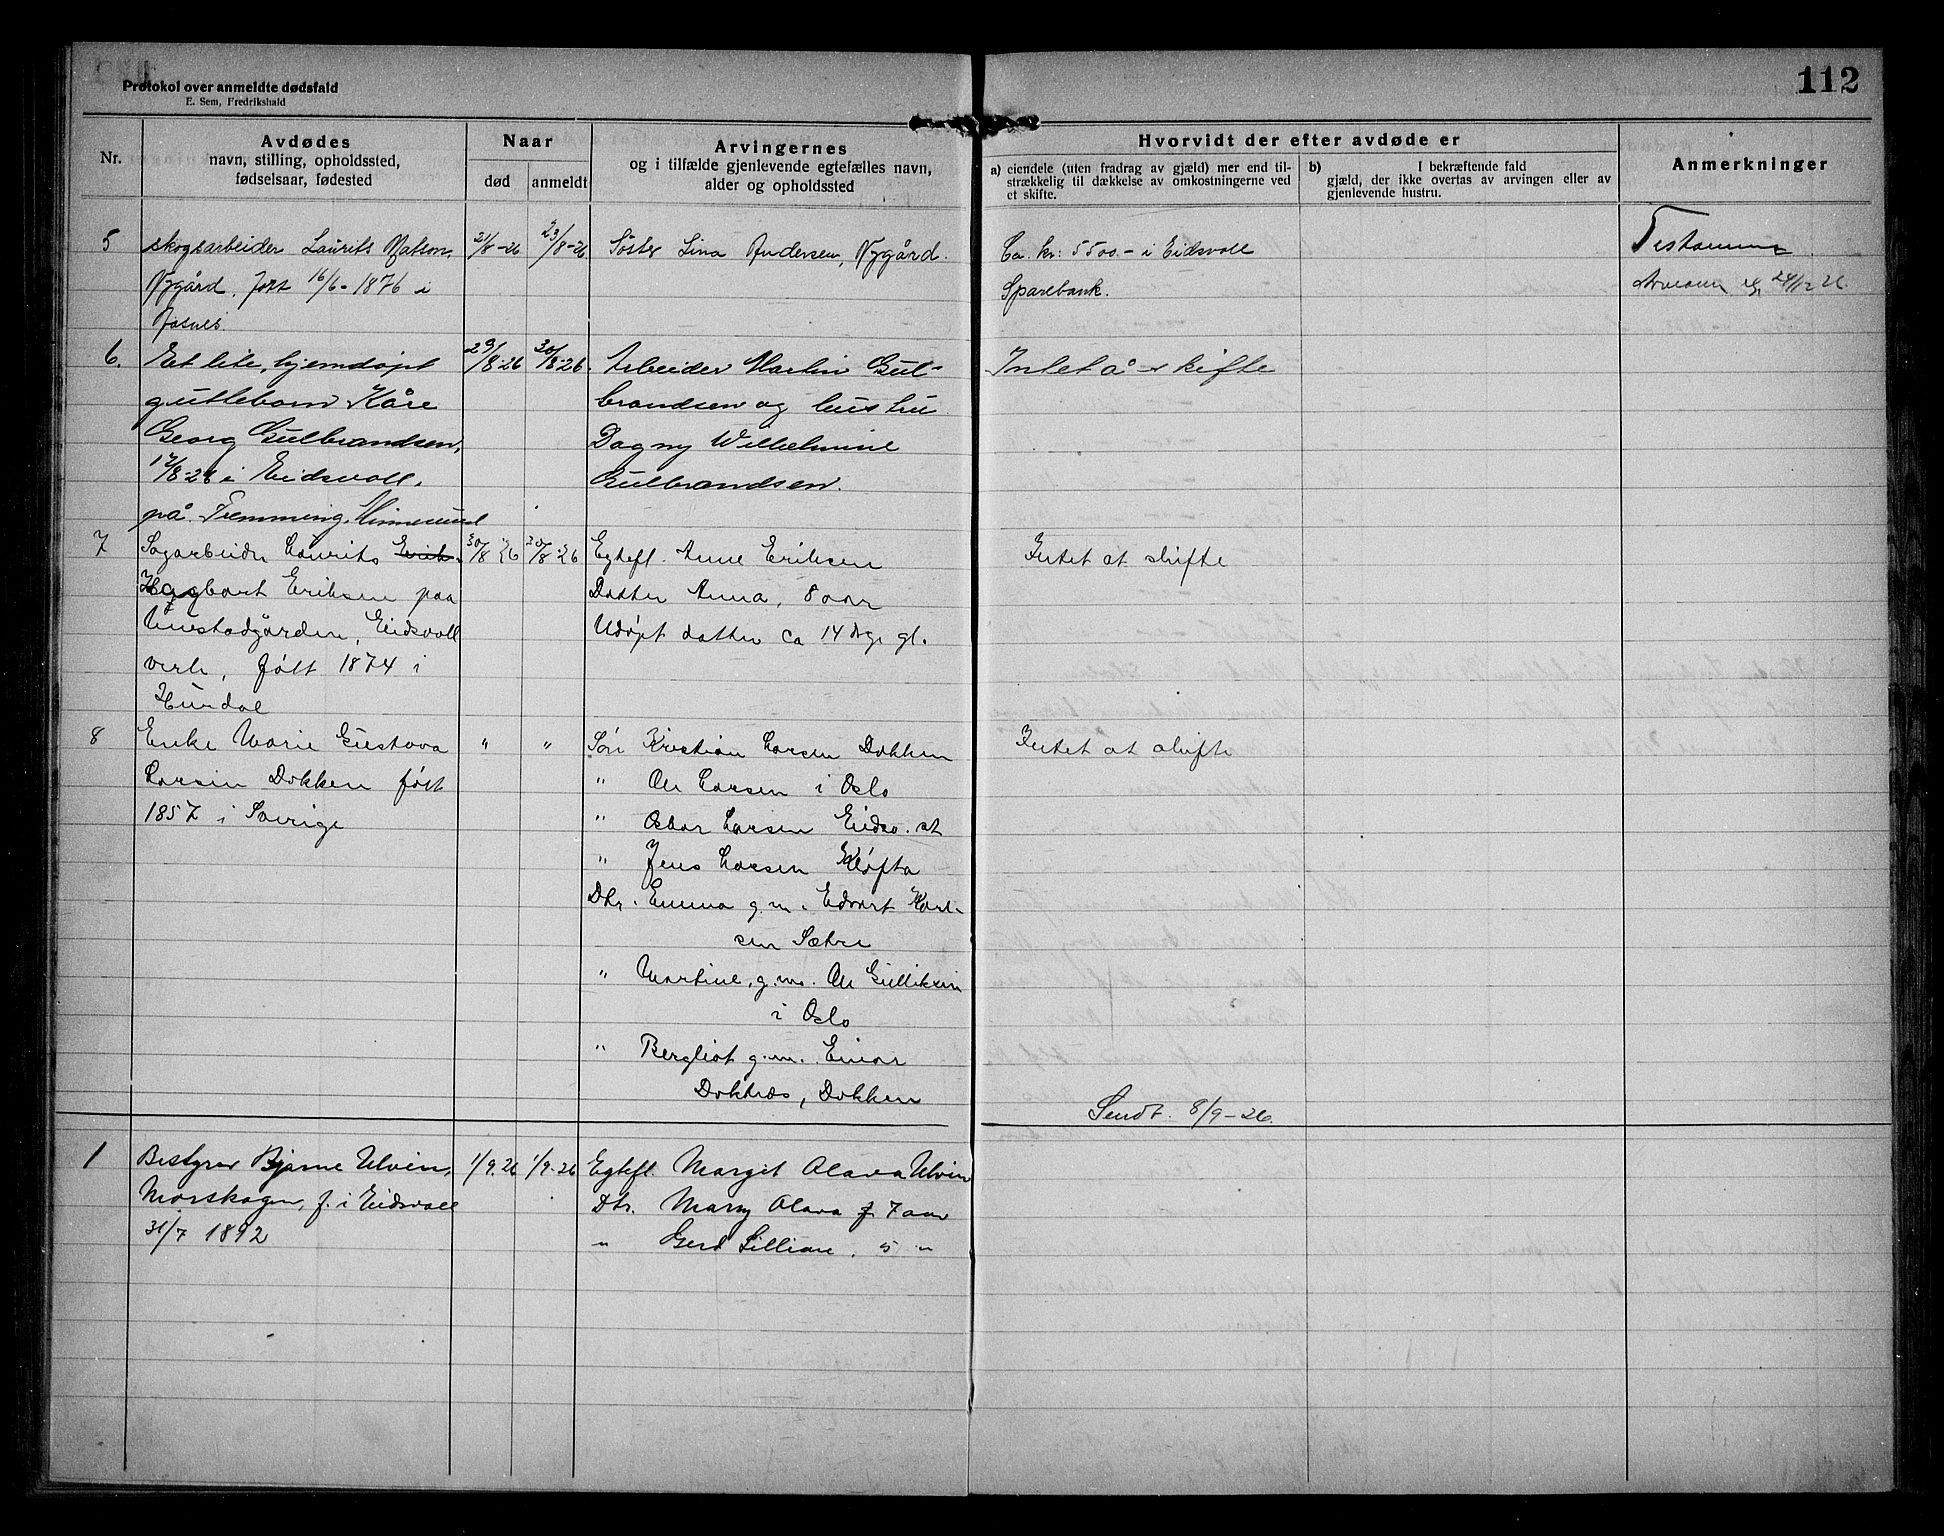 Protokol over anmeldte dødsfald
E. Sem, Fredrikshald
112
Nr.
Avdødes
navn, stilling, opholdssted,
fødselsaar, fødested
Naar
død
anmeldt
Arvingernes
og i tilfælde gjenlevende egtefælles navn,
alder og opholdssted
Hvorvidt der efter avdøde er
a) eiendele (uten fradrag av gjæld) mer end til-
strækkelig til dækkelse av omkostningerne ved
et skifte.
b) I bekræftende fald
gjæld, der ikke overtas av arvingen eller av
gjenlevende hustru.
Anmerkninger
5
skogsarbeider Laurits Matson,
Nygård. Født 16/6-1876 i
21/8-26
23/8-26
Søster Lina Andersen, Nygård.
Ca. kr: 5500.- i Eidsvoll
Sparebank.
24/12 26.
6.
Et lite, hjemdøpt
guttebarn Kåre
Georg Gulbrandsen,
17/8-26 i Eidsvoll,
på Fremming, Minnesund
29/8-26
30/8-26.
Arbeider Martin Gul-
brandsen og hustru
Dagny Wilhelmine
Gulbrandsen.
Intet å skifte
7
Sagarbeider Laurits Erik
Hagbart Eriksen paa
Eidsvoll
verk, født 1874 i
Hurdal
30/8-26
30/8-26
Egtefl. Anne Eriksen
Datter Anna, 8 aar
Udøpt datter ca 14 dage gl.
Intet at skifte
8
Enke Marie Gustava
Larsen Dokken født
1857 i Sverige
"
"
Søn Kristian Larsen Dokken
" Ole Larsen i Oslo
" Oskar Larsen Eidsv. st
" Jens Larsen Kløfta
Dtr. Emma g.m. Edvart Karl-
sen Sætre
" Martine, g.m. Ole Gulliksen
i Oslo
" Bergliot g.m. Einar
Dokknes, Dokken
Intet at skifte
Sendt. 8/9-26.
1
Bestyrer Bjarne Ulven,
Morskogen, f. i Eidsvoll
31/7 1892
1/9.26
1/9-26
Egtefl. Margit Olava Ulven
Dtr. Mary Olava f 7 aar
" Gerd Lilliane. 5 "